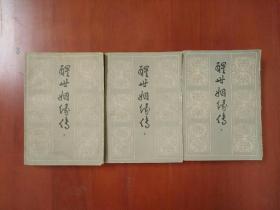 醒世姻缘传
醒世姻缘传
醒世姻缘传